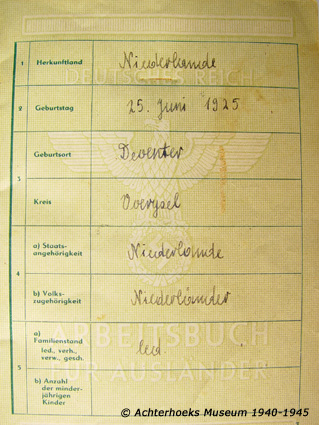 DEUTSCHES REICH
1 Herkunftland Niederlande
2 Geburtstag 25. Juni 1925
Geburtsort Deventer
3
Kreis Overysel
a) Staats-
angehörigkeit Niederlande
4
b) Volks-
zugehörigkeit Niederländer
ARBEITSBUCH
a)
Familienstand
led., verh.,
verw., gesch. led.
FÜR AUSLÄNDER
5
b) Anzahl
der minder-
jährigen
Kinder
© Achterhoeks Museum 1940-1945